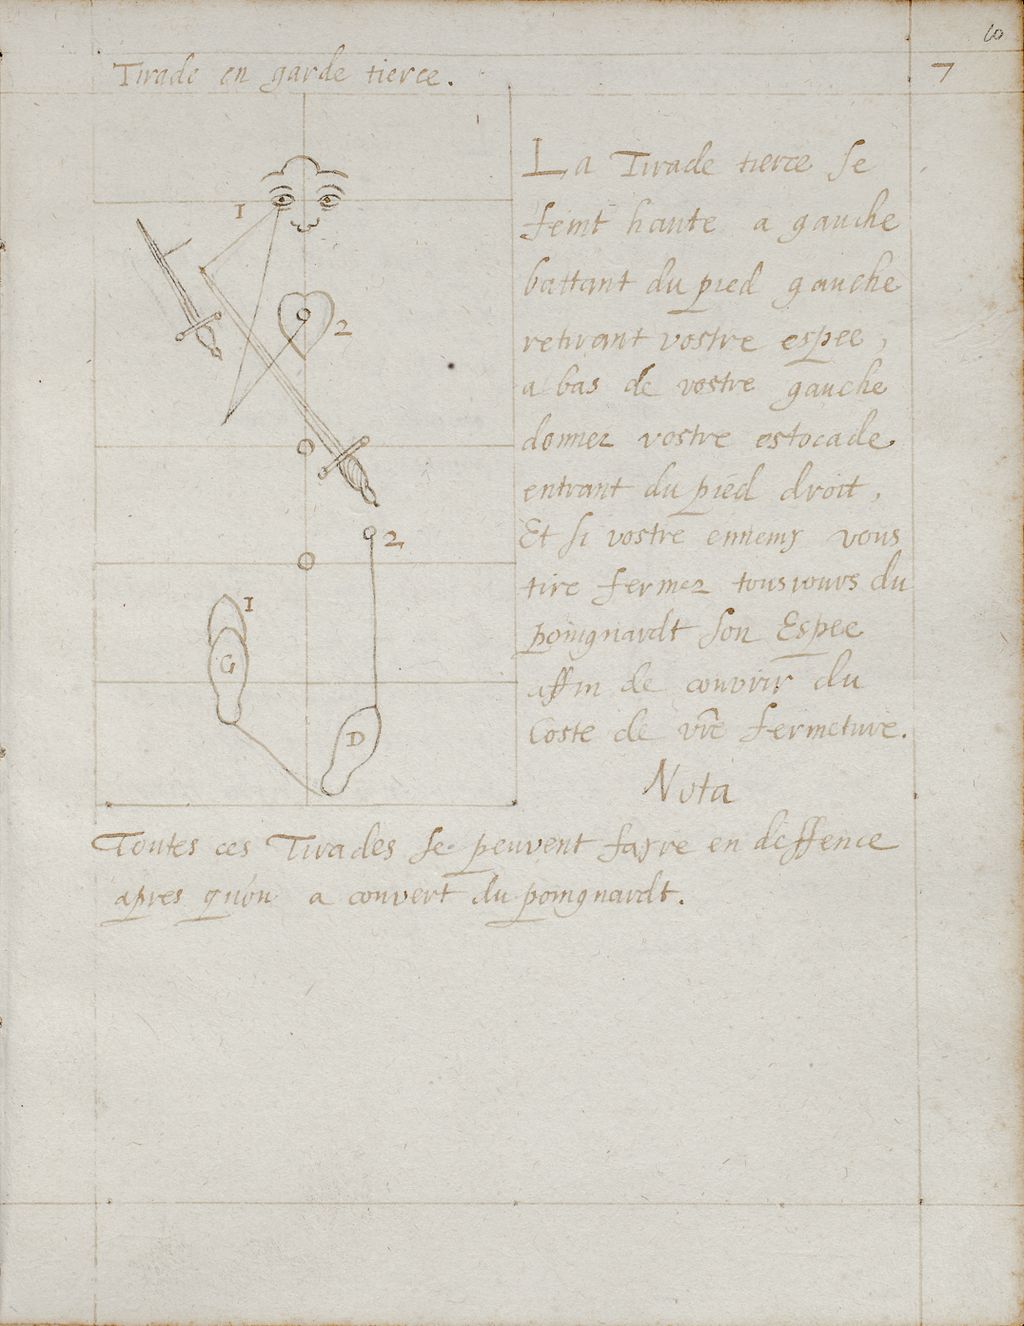 10
Tirade en garde tierce.
7
La Tirade tierce se
feint haute a gauche
battant du pied gauche
retirant vostre espee,
a bas de vostre gauche
donnez vostre estocade
entrant du pied droit,
Et si vostre ennemy vous
tire fermez tousiours du
poingnardt son Espee
affin de couvrir du
Coste de vre fermeture.
Nota
Toutes ces Tirades se peuvent fayre en deffence
apres qu'on a couvert du poingnardt.
1
2
2
1
G
D